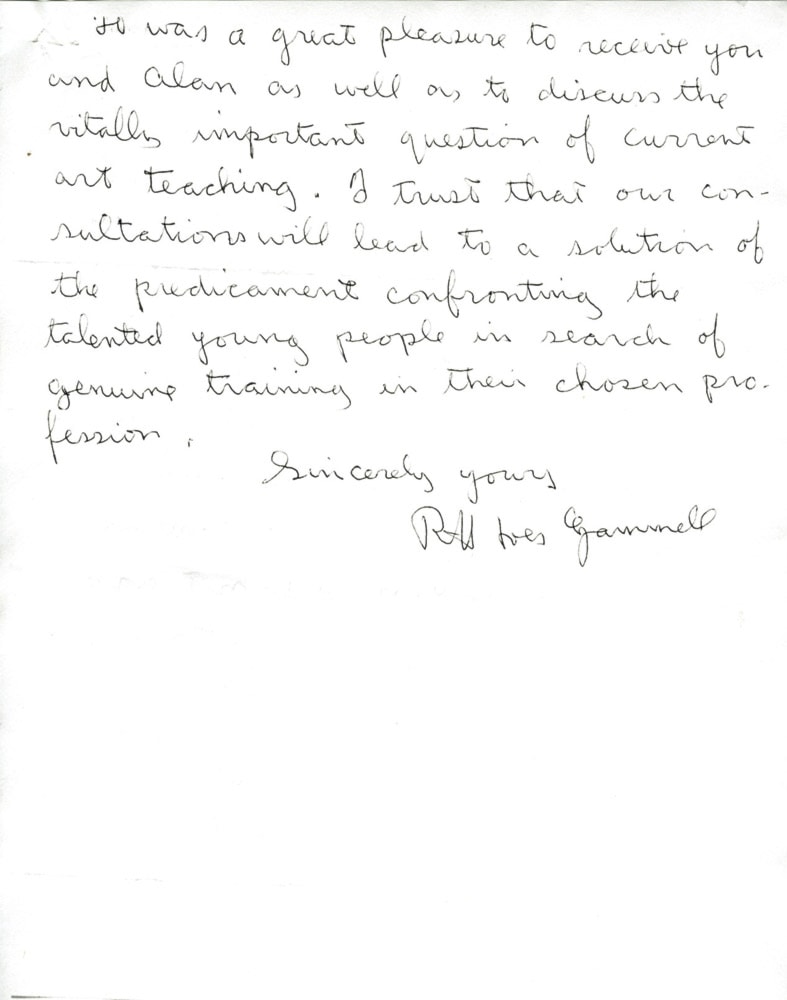 It was a great pleasure to receive you
and Alan as well as to discuss the
vitally important question of current
art teaching. I trust that our con-
sultations will lead to a solution of
the predicament confronting the
talented young people in search of
genuine training in their chosen pro-
fession.
Sincerely yours
RH Ives Gammell